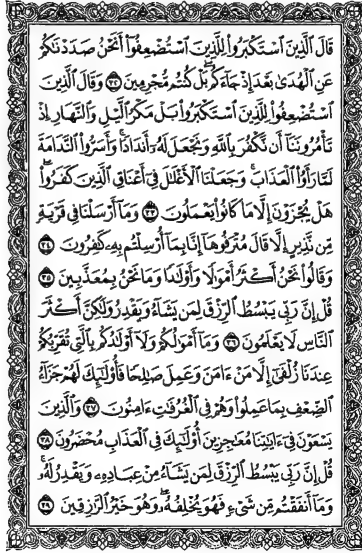 قَالَ ٱلَّذِينَ ٱسْتَكْبَرُوا۟ لِلَّذِينَ ٱسْتُضْعِفُوٓا۟ أَنَحْنُ صَدَدْنَٰكُمْ
عَنِ ٱلْهُدَىٰ بَعْدَ إِذْ جَآءَكُم ۖ بَلْ كُنتُم مُّجْرِمِينَ ٣٢ وَقَالَ ٱلَّذِينَ
ٱسْتُضْعِفُوا۟ لِلَّذِينَ ٱسْتَكْبَرُوا۟ بَلْ مَكْرُ ٱلَّيْلِ وَٱلنَّهَارِ إِذْ
تَأْمُرُونَنَآ أَن نَّكْفُرَ بِٱللَّهِ وَنَجْعَلَ لَهُۥٓ أَندَادًا ۚ وَأَسَرُّوا۟ ٱلنَّدَامَةَ
لَمَّا رَأَوُا۟ ٱلْعَذَابَ ۚ وَجَعَلْنَا ٱلْأَغْلَٰلَ فِىٓ أَعْنَاقِ ٱلَّذِينَ كَفَرُوا۟ ۖ
هَلْ يُجْزَوْنَ إِلَّا مَا كَانُوا۟ يَعْمَلُونَ ٣٣ وَمَآ أَرْسَلْنَا فِى قَرْيَةٍ
مِّن نَّذِيرٍ إِلَّا قَالَ مُتْرَفُوهَآ إِنَّا بِمَآ أُرْسِلْتُم بِهِۦ كَٰفِرُونَ ٣٤
وَقَالُوا۟ نَحْنُ أَكْثَرُ أَمْوَٰلًا وَأَوْلَٰدًا وَمَا نَحْنُ بِمُعَذَّبِينَ ٣٥
قُلْ إِنَّ رَبِّى يَبْسُطُ ٱلرِّزْقَ لِمَن يَشَآءُ وَيَقْدِرُ وَلَٰكِنَّ أَكْثَرَ
ٱلنَّاسِ لَا يَعْلَمُونَ ٣٦ وَمَآ أَمْوَٰلُكُمْ وَلَآ أَوْلَٰدُكُم بِٱلَّتِى تُقَرِّبُكُمْ
عِندَنَا زُلْفَىٰٓ إِلَّا مَنْ ءَامَنَ وَعَمِلَ صَٰلِحًا فَأُو۟لَٰٓئِكَ لَهُمْ جَزَآءُ
ٱلضِّعْفِ بِمَا عَمِلُوا۟ وَهُمْ فِى ٱلْغُرُفَٰتِ ءَامِنُونَ ٣٧ وَٱلَّذِينَ
يَسْعَوْنَ فِىٓ ءَايَٰتِنَا مُعَٰجِزِينَ أُو۟لَٰٓئِكَ فِى ٱلْعَذَابِ مُحْضَرُونَ ٣٨
قُلْ إِنَّ رَبِّى يَبْسُطُ ٱلرِّزْقَ لِمَن يَشَآءُ مِنْ عِبَادِهِۦ وَيَقْدِرُ لَهُۥ ۚ
وَمَآ أَنفَقْتُم مِّن شَىْءٍ فَهُوَ يُخْلِفُهُۥ ۖ وَهُوَ خَيْرُ ٱلرَّٰزِقِينَ ٣٩